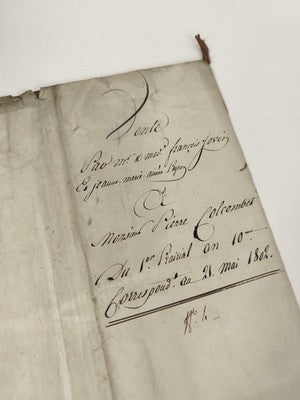 Vente
Par mr & made françois Jovin
Et jeanne marie aimée
À
Monsieur Pierre Colcombet
Du 1er Prairial an 10me
Correspondt au 21 mai 1802.